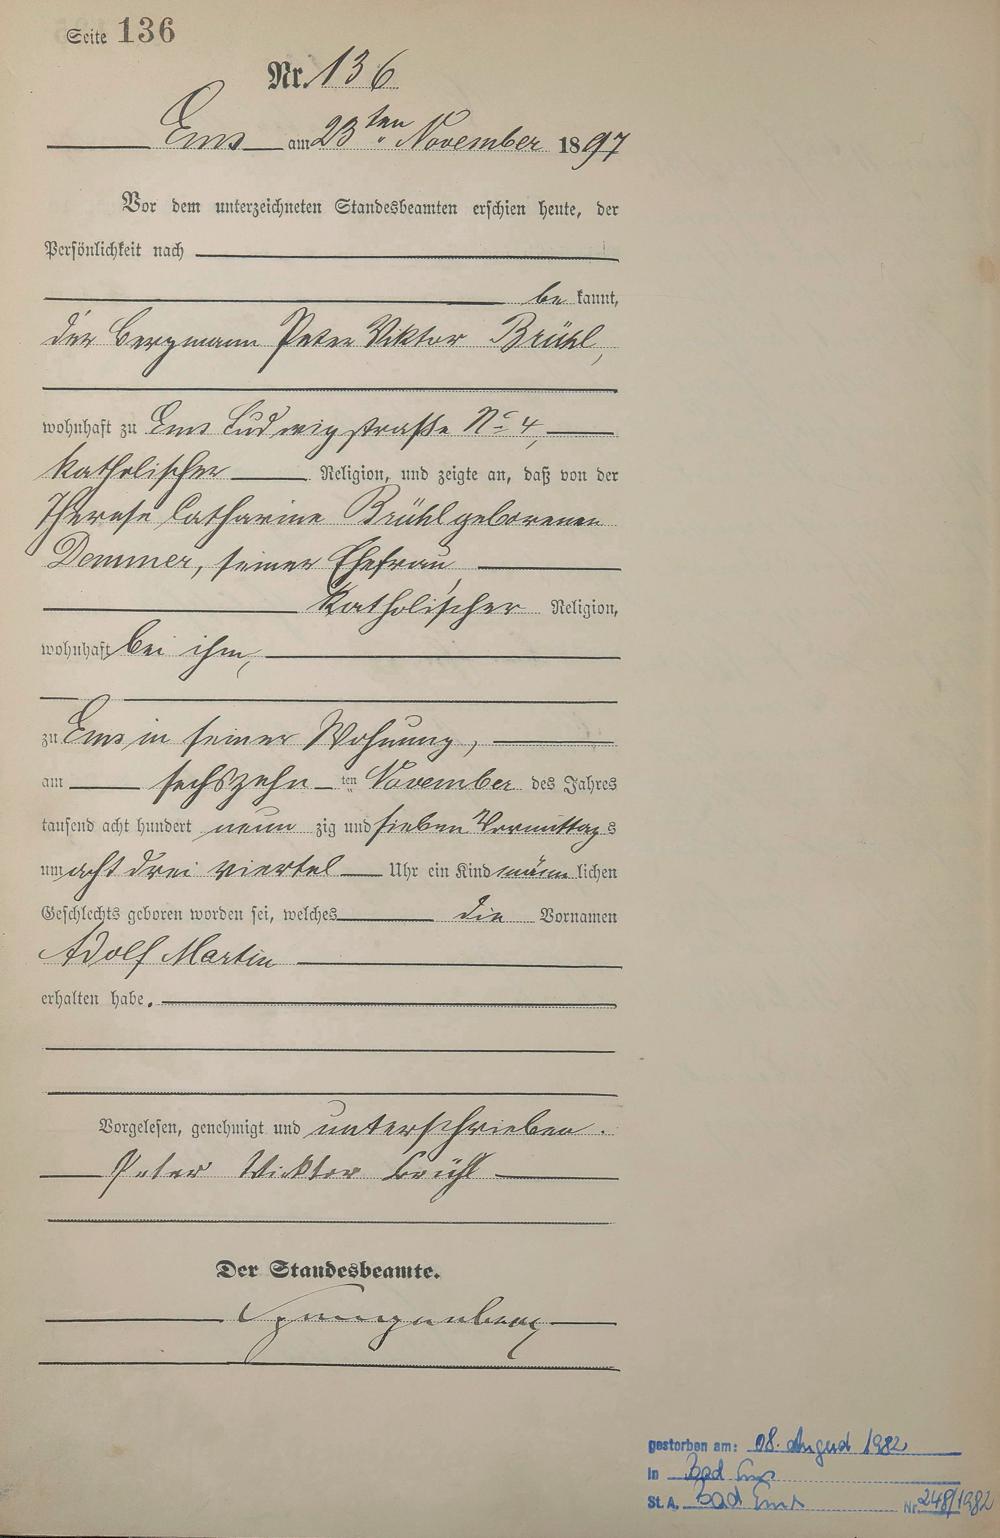 Seite 136
Nr. 136
Ems am 23ten November 1897
Vor dem unterzeichneten Standesbeamten erschien heute, der
Persönlichkeit nach
be kannt,
der Bergmann Peter Viktor Brühl,
wohnhaft zu Ems Ludwigstraße No 4,
katholischer Religion, und zeigte an, daß von der
Therese Catharine Brühl geborenen
Demmer, seiner Ehefrau,
katholischer Religion,
wohnhaft bei ihm,
zu Ems in seiner Wohnung,
am sechszehn ten November des Jahres
tausend acht hundert neun zig und sieben Vormittags
um acht drei viertel Uhr ein Kind männ lichen
Geschlechts geboren worden sei, welches die Vornamen
Adolf Martin
erhalten habe.
Vorgelesen, genehmigt und unterschrieben.
Peter Viktor Brühl
Der Standesbeamte.
Spangenberg
gestorben am: 08. August 1982
in Bad Ems
St. A. Bad Ems Nr. 248/1982